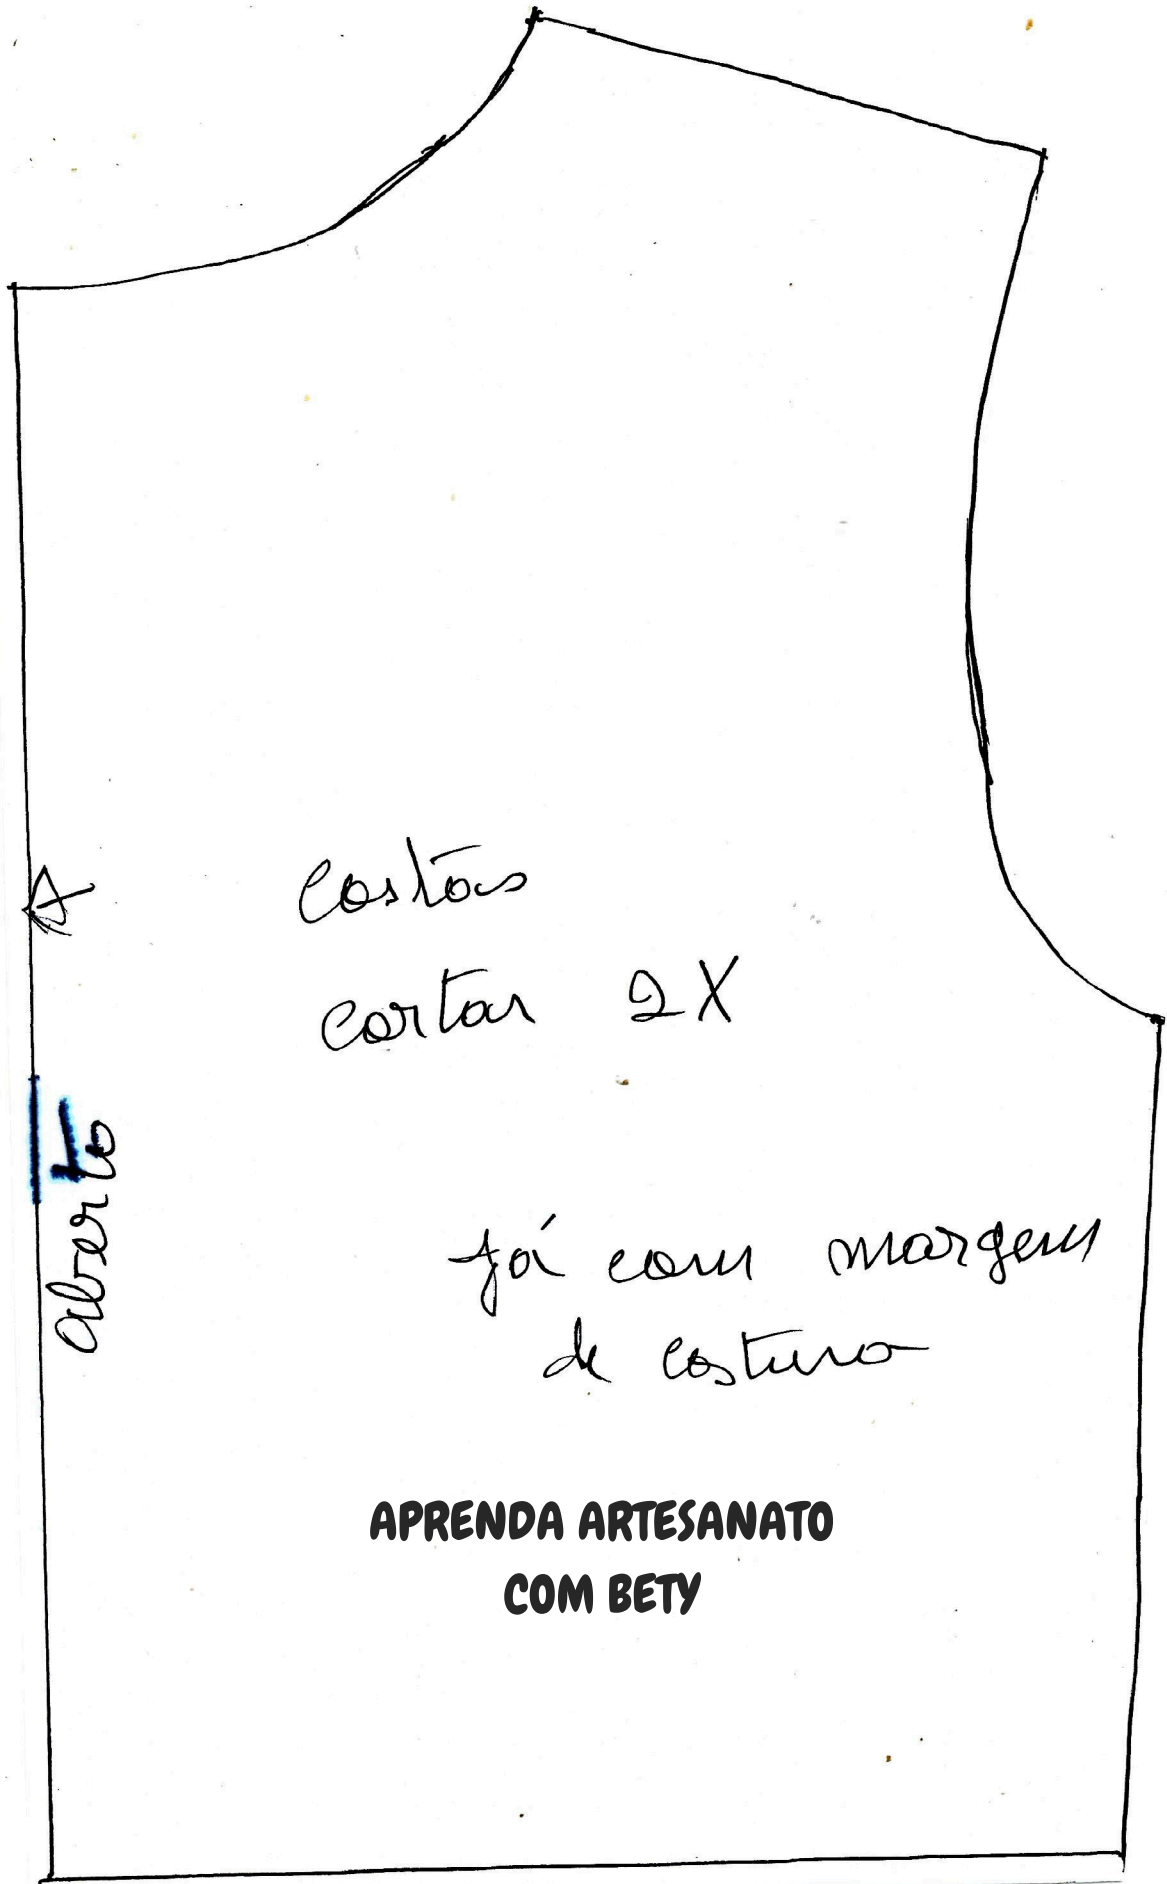 Costas
cortar 2X
aberto
Já com margem
de costura
APRENDA ARTESANATO
COM BETY